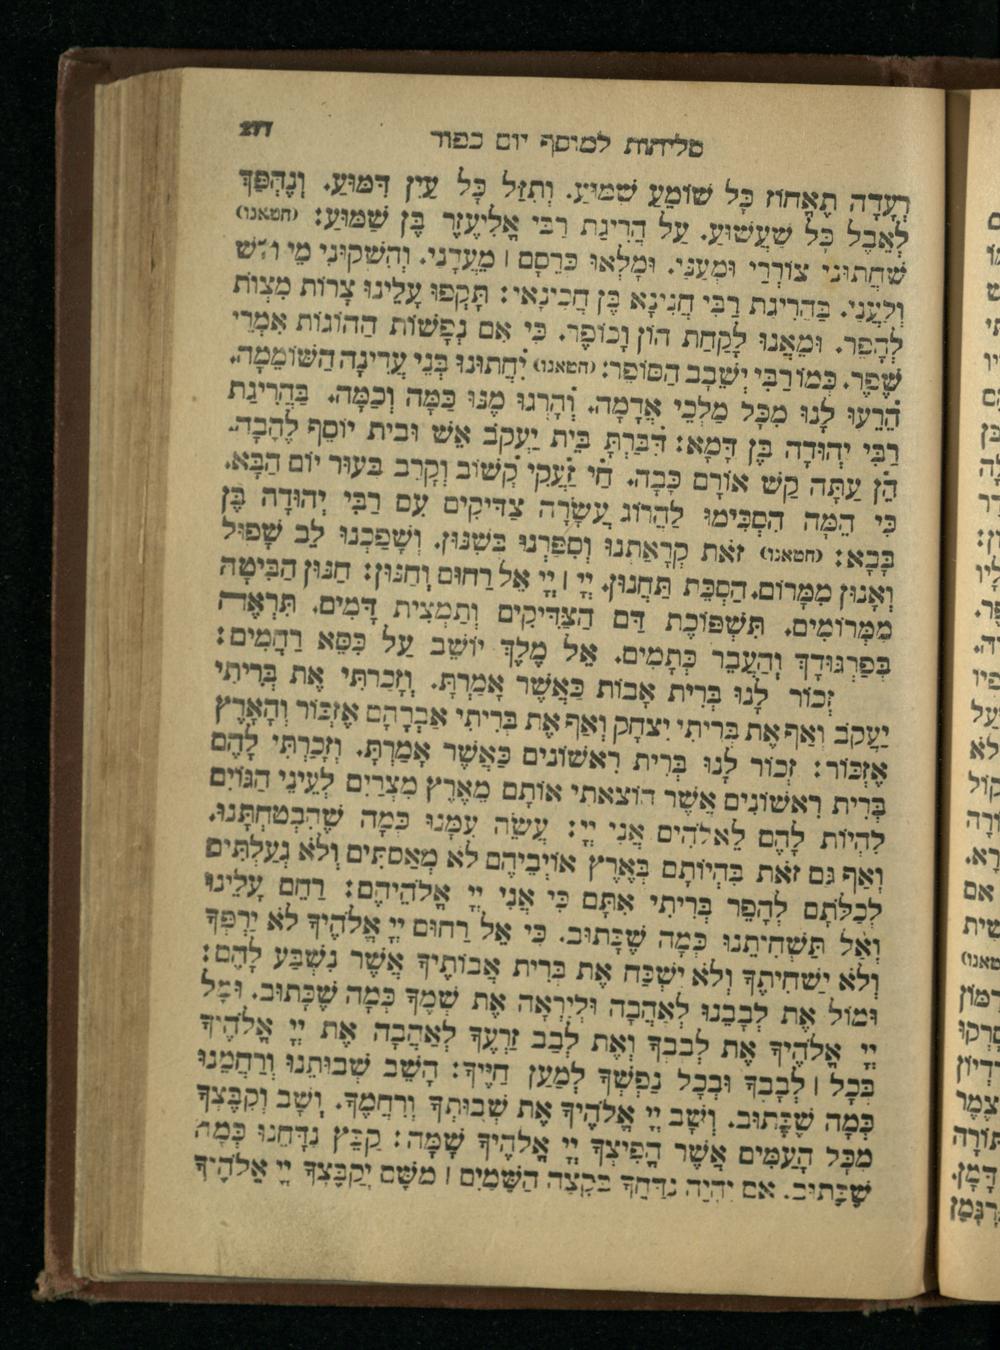 סליחות למוסף יום כפור
רְעָדָה תֶאֱחוֹז כָּל שׁוֹמֵעַ שָׁמוֹעַ. וְתִזַּל כָּל עַיִן דִּמּוּעַ. וְנֶהְפַּךְ
לְאֵבֶל כָּל שַׁעֲשׁוּעַ. עַל הֲרִיגַת רַבִּי אֱלִיעֶזֶר בֶּן שַׁמּוּעַ: (חטאנו)
שִׁחֲתוּנִי צוֹרְרַי וּמְעַנַּי. וּמָלְאוּ כְּרֵסָם ׀ מֵעֲדָנַי. וְהִשְׁקוּנִי מֵי
וְלַעֲנִי. בַּהֲרִיגַת רַבִּי חֲנִינָא בֶּן חֲכִינָאִי: תָּקְפוּ עָלֵינוּ צָרוֹת מִצְוֹת
לְהָפֵר. וּמֵאֲנוּ לָקַחַת הוֹן וָכוֹפֶר. כִּי אִם נְפָשׁוֹת הַהוֹגוֹת אִמְרֵי
שֶׁפֶר. כְּמוֹ רַבִּי יְשֵׁבָב הַסּוֹפֵר: (חטאנו) יִחֲתוּנוּ בְּנֵי עֲדִינָה הַשּׁוֹמֵמָה.
הֵרֵעוּ לָנוּ מִכָּל מַלְכֵי אֲדָמָה. וְהָרְגוּ מֶנּוּ כַּמָּה וְכַמָּה. בַּהֲרִיגַת
רַבִּי יְהוּדָה בֶּן דָּמָא: דִּבַּרְתָּ בֵּית יַעֲקֹב אֵשׁ וּבֵית יוֹסֵף לֶהָבָה.
הֵן עַתָּה קַשׁ אוֹרָם כָּבָה. חַי זַעֲקִי קְשׁוֹב וְקָרֵב בִּעוּר יוֹם הַבָּא.
כִּי הֵמָּה הִסְכִּימוּ לַהֲרוֹג עֲשָׂרָה צַדִּיקִים עִם רַבִּי יְהוּדָה בֶּן
בָּבָא: (חטאנו) זֹאת קְרָאַתְנוּ וְסִפַּרְנוּ בְּשִׁנּוּן. וְשָׁפַכְנוּ לֵב שָׁפוּל
וְאָנוּן מִמָּרוֹם. הַסְכֵּת תַּחֲנוּן. יְיָ ׀ יְיָ אֵל רַחוּם וְחַנּוּן: חַנּוּן הַבִּיטָה
מִמְּרוֹמִים. תִּשְׁפּוֹכֶת דַּם הַצַּדִּיקִים וְתַמְצִית דָּמִים. תִּרְאֶה
בְּפַרְגּוּדָךְ וְהַעֲבֵר כְּתָמִים. אֵל מֶלֶךְ יוֹשֵׁב עַל כִּסֵּא רַחֲמִים:
זְכוֹר לָנוּ בְּרִית אָבוֹת כַּאֲשֶׁר אָמַרְתָּ. וְזָכַרְתִּי אֶת בְּרִיתִי
יַעֲקֹב וְאַף אֶת בְּרִיתִי יִצְחָק וְאַף אֶת בְּרִיתִי אַבְרָהָם אֶזְכּוֹר וְהָאָרֶץ
אֶזְכּוֹר: זְכוֹר לָנוּ בְּרִית רִאשׁוֹנִים כַּאֲשֶׁר אָמַרְתָּ. וְזָכַרְתִּי לָהֶם
בְּרִית רִאשׁוֹנִים אֲשֶׁר הוֹצֵאתִי אוֹתָם מֵאֶרֶץ מִצְרַיִם לְעֵינֵי הַגּוֹיִם
לִהְיוֹת לָהֶם לֵאלֹהִים אֲנִי יְיָ: עֲשֵׂה עִמָּנוּ כְּמָה שֶׁהִבְטַחְתָּנוּ.
וְאַף גַּם זֹאת בִּהְיוֹתָם בְּאֶרֶץ אוֹיְבֵיהֶם לֹא מְאַסְתִּים וְלֹא גְעַלְתִּים
לְכַלֹּתָם לְהָפֵר בְּרִיתִי אִתָּם כִּי אֲנִי יְיָ אֱלֹהֵיהֶם: רַחֵם עָלֵינוּ
וְאַל תַּשְׁחִיתֵנוּ כְּמָה שֶׁכָּתוּב. כִּי אֵל רַחוּם יְיָ אֱלֹהֶיךָ לֹא יַרְפְּךָ
וְלֹא יַשְׁחִיתֶךָ וְלֹא יִשְׁכַּח אֶת בְּרִית אֲבוֹתֶיךָ אֲשֶׁר נִשְׁבַּע לָהֶם:
וּמוֹל אֶת לְבָבֵנוּ לְאַהֲבָה וּלְיִרְאָה אֶת שְׁמֶךָ כְּמָה שֶׁכָּתוּב. וּמָל
יְיָ אֱלֹהֶיךָ אֶת לְבָבְךָ וְאֶת לְבַב זַרְעֶךָ לְאַהֲבָה אֶת יְיָ אֱלֹהֶיךָ
בְּכָל ׀ לְבָבְךָ וּבְכָל נַפְשְׁךָ לְמַעַן חַיֶּיךָ: הָשֵׁב שְׁבוּתֵנוּ וְרַחֲמֵנוּ
כְּמָה שֶׁכָּתוּב. וְשָׁב יְיָ אֱלֹהֶיךָ אֶת שְׁבוּתְךָ וְרִחֲמֶךָ. וְשָׁב וְקִבֶּצְךָ
מִכָּל הָעַמִּים אֲשֶׁר הֱפִיצְךָ יְיָ אֱלֹהֶיךָ שָׁמָּה: קַבֵּץ נִדָּחֵנוּ כְּמָה
שֶׁכָּתוּב. אִם יִהְיֶה נִדַּחֲךָ בִּקְצֵה הַשָּׁמַיִם ׀ מִשָּׁם יְקַבֶּצְךָ יְיָ אֱלֹהֶיךָ